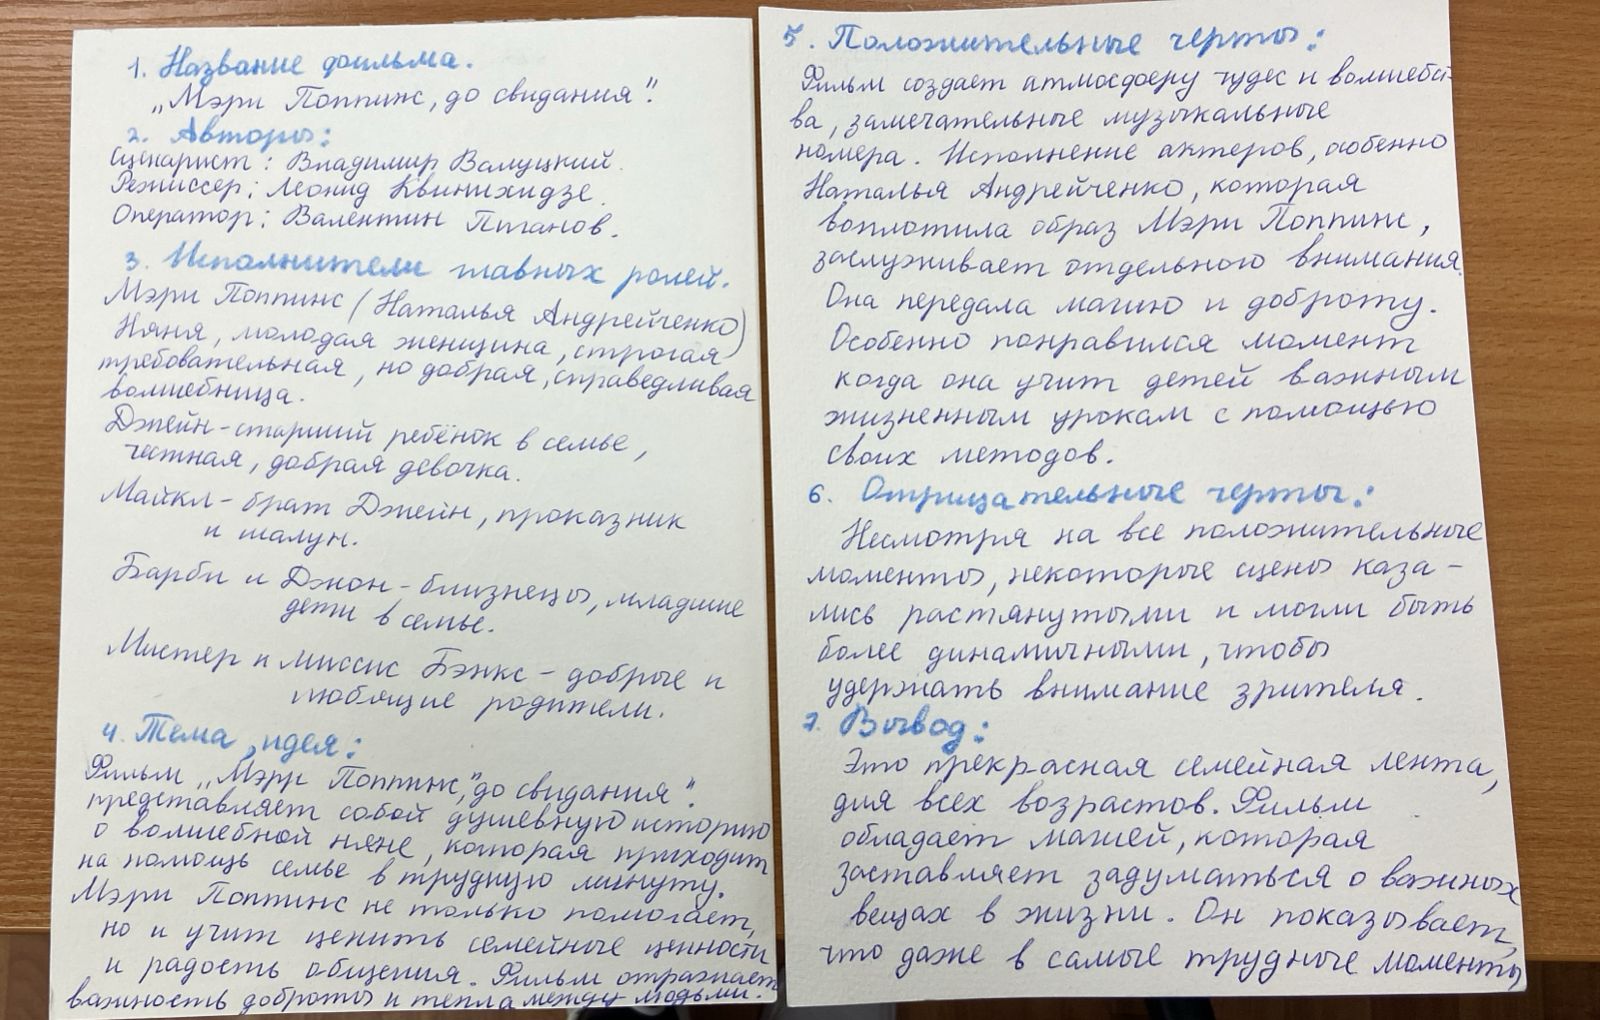 1. Название фильма.
„Мэри Поппинс, до свидания".
2. Авторы:
Сценарист: Владимир Валуцкий.
Режиссер: Леонид Квинихидзе.
Оператор: Валентин Пиганов.
3. Исполнители главных ролей.
Мэри Поппинс (Наталья Андрейченко)
Няня, молодая женщина, строгая
требовательная, но добрая, справедливая
волшебница.
Джейн - старший ребёнок в семье,
честная, добрая девочка.
Майкл - брат Джейн, проказник
и шалун.
Барби и Джон - близнецы, младшие
дети в семье.
Мистер и миссис Бэнкс - добрые и
любящие родители.
4. Тема, идея:
Фильм „Мэри Поппинс", до свидания".
представляет собой душевную историю
о волшебной няне, которая приходит
на помощь семье в трудную минуту.
Мэри Поппинс не только помогает,
но и учит ценить семейные ценности
и радость общения. Фильм отражает
важность доброты и тепла между людьми.
5. Положительные черты:
Фильм создает атмосферу чудес и волшебст-
ва, замечательные музыкальные
номера. Исполнение актеров, особенно
Наталья Андрейченко, которая
воплотила образ Мэри Поппинс,
заслуживает отдельного внимания.
Она передала магию и доброту.
Особенно понравился момент
когда она учит детей важным
жизненным урокам с помощью
своих методов.
6. Отрицательные черты:
Несмотря на все положительные
моменты, некоторые сцены каза-
лись растянутыми и могли быть
более динамичными, чтобы
удержать внимание зрителя.
7. Вывод:
Это прекрасная семейная лента,
для всех возрастов. Фильм
обладает магией, которая
заставляет задуматься о важных
вещах в жизни. Он показывает,
что даже в самые трудные моменты,